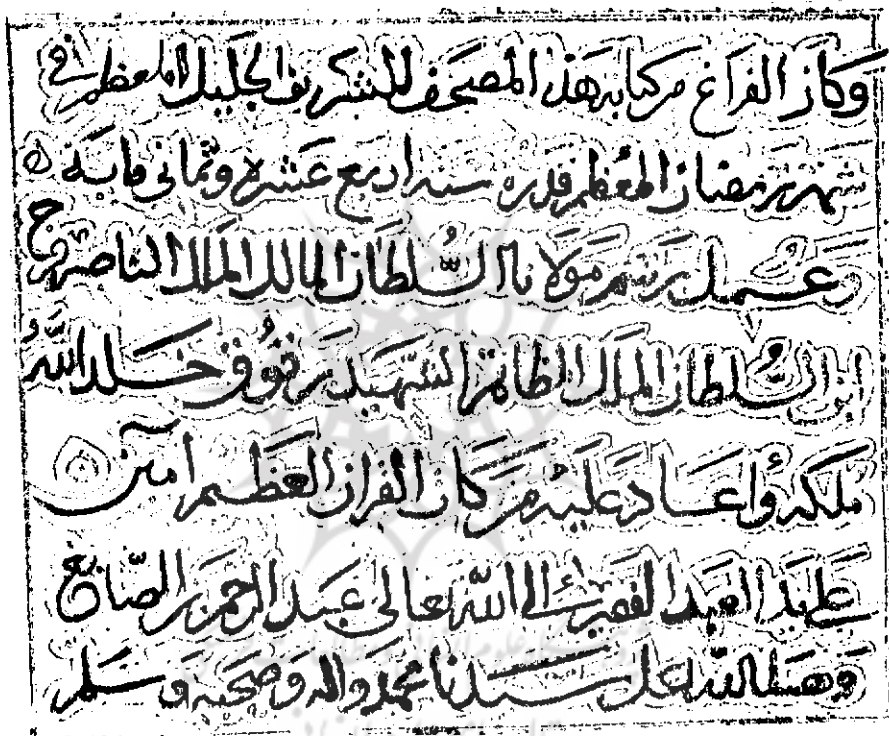 وكان الفراغ من كتابة هذا المصحف الشريف الجليل المعظم في
شهر رمضان المعظم قدره سنة اربع عشرة وثماني مايه
وعمل برسم مولانا السلطان المالك الملك الناصر فرج
ابن السلطان الملك الظاهر الشهيد برقوق خلد الله
ملكه وأعاد عليه من بركات القران العظيم امين
على يد العبد الفقير الى الله تعالى عبد الرحمن بن الصايغ
وصلى الله على سيدنا محمد واله وصحبه وسلم